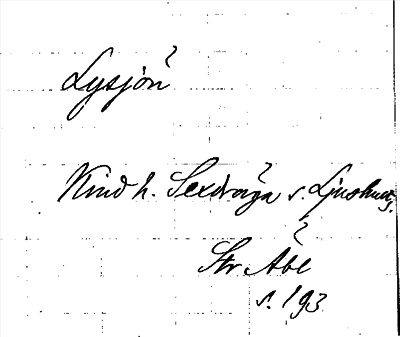 Lysjön
Kind h. Sexdräga s. Ljushult s.
Str Äbl
s. 193